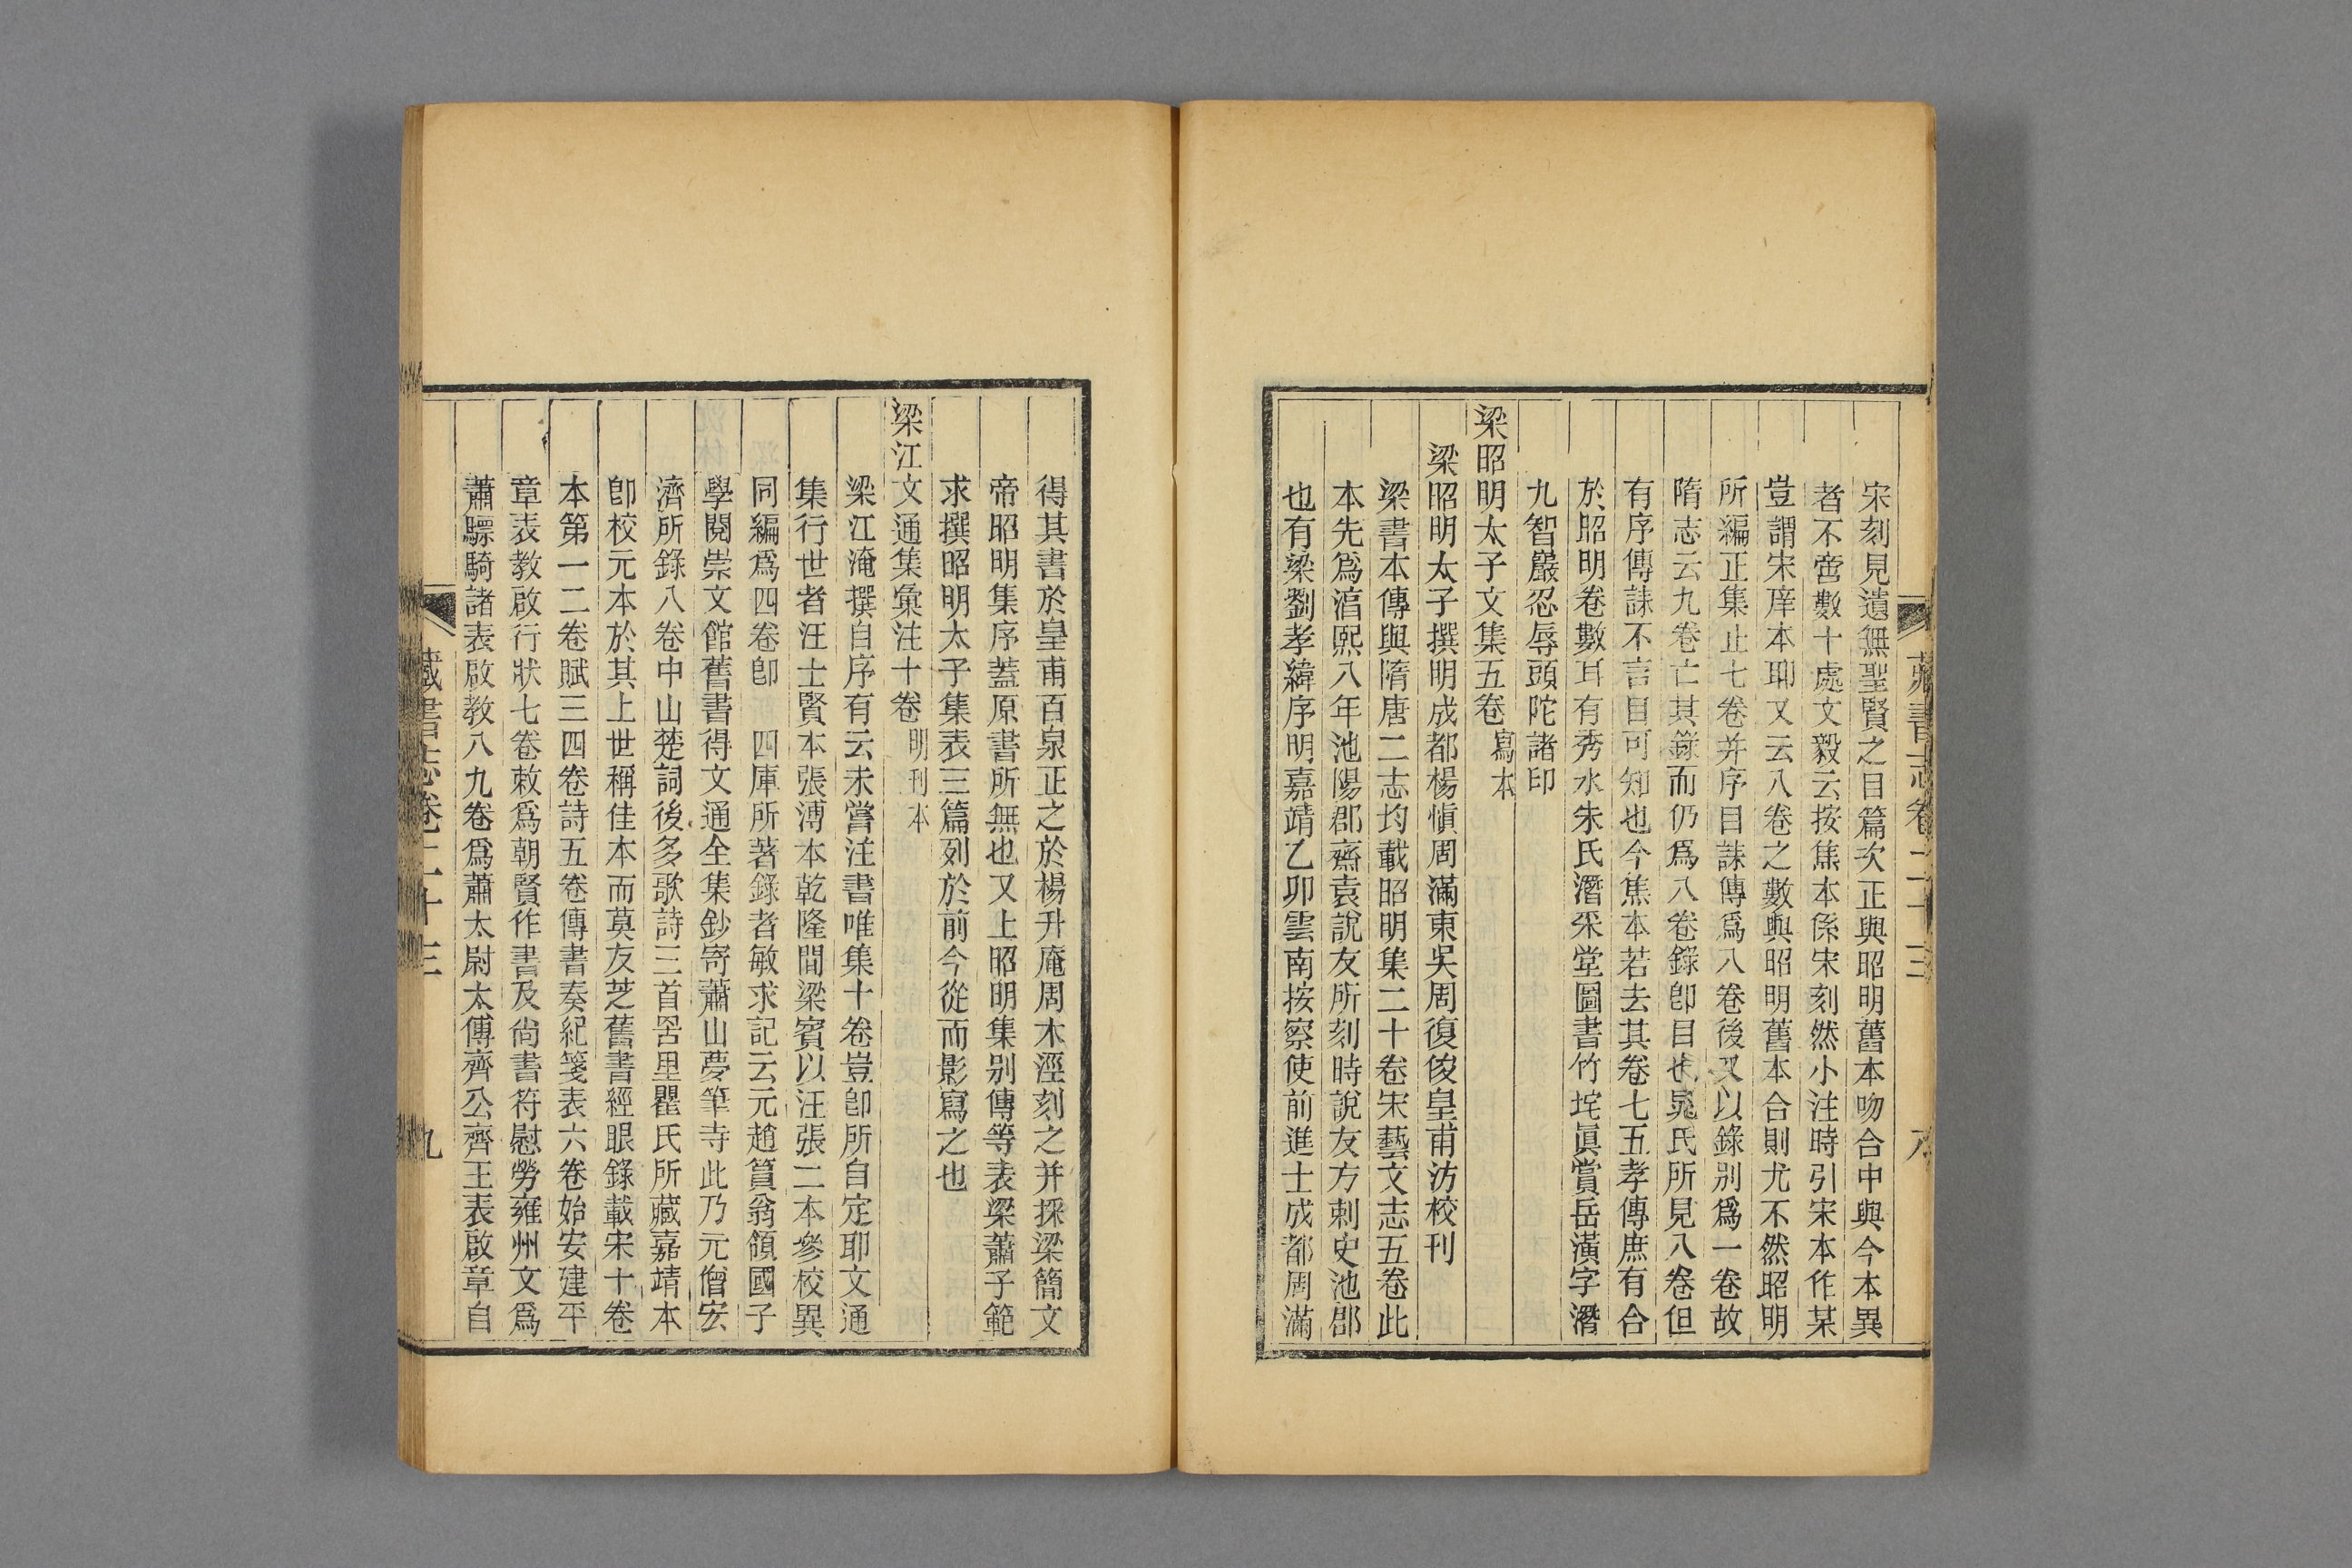 藏書志卷二十三
八
宋刻見遺無聖賢之目篇次正與昭明舊本吻合中與今本異
者不啻數十處文毅云按焦本係宋刻然小注時引宋本作某
豈謂宋庠本耶又云八卷之數與昭明舊本合則尤不然昭明
所編正集止七卷并序目誄傳爲八卷後又以錄別爲一卷故
隋志云九卷亡其錄而仍爲八卷錄卽目也晁氏所見八卷但
有序傳誄不言目可知也今焦本若去其卷七五孝傳庶有合
於昭明卷數耳有秀水朱氏潛采堂圖書竹垞眞賞岳潢字潛
九智嚴忍辱頭陀諸印
梁昭明太子文集五卷 寫本
梁昭明太子撰明成都楊愼周滿東吳周復俊皇甫汸校刊
梁書本傳與隋唐二志均載昭明集二十卷宋藝文志五卷此
本先爲淯熙八年池陽郡齋袁說友所刻時說友方刺史池郡
也有梁劉孝緯序明嘉靖乙卯雲南按察使前進士成都周滿
得其書於皇甫百泉正之於楊升庵周木涇刻之并採梁簡文
帝昭明集序蓋原書所無也又上昭明集別傳等表梁蕭子範
求撰昭明太子集表三篇列於前今從而影寫之也
梁江文通集彙注十卷 明刊本
梁江淹撰自序有云未嘗注書唯集十卷豈卽所自定耶文通
集行世者汪士賢本張溥本乾隆間梁賓以汪張二本參校異
同編爲四卷卽 四庫所著錄者敏求記云元趙篔翁領國子
學閱崇文館舊書得文通全集鈔寄蕭山夢筆寺此乃元僧宏
濟所錄八卷中山楚詞後多歌詩三首罟里瞿氏所藏嘉靖本
卽校元本於其上世稱佳本而莫友芝舊書經眼錄載宋十卷
本第一二卷賦三四卷詩五卷傳書奏紀箋表六卷始安建平
章表教啟行狀七卷敕爲朝賢作書及尙書符慰勞雍州文爲
蕭驃騎諸表啟教八九卷爲蕭太尉太傅齊公齊王表啟章自
藏書志卷二十三
九